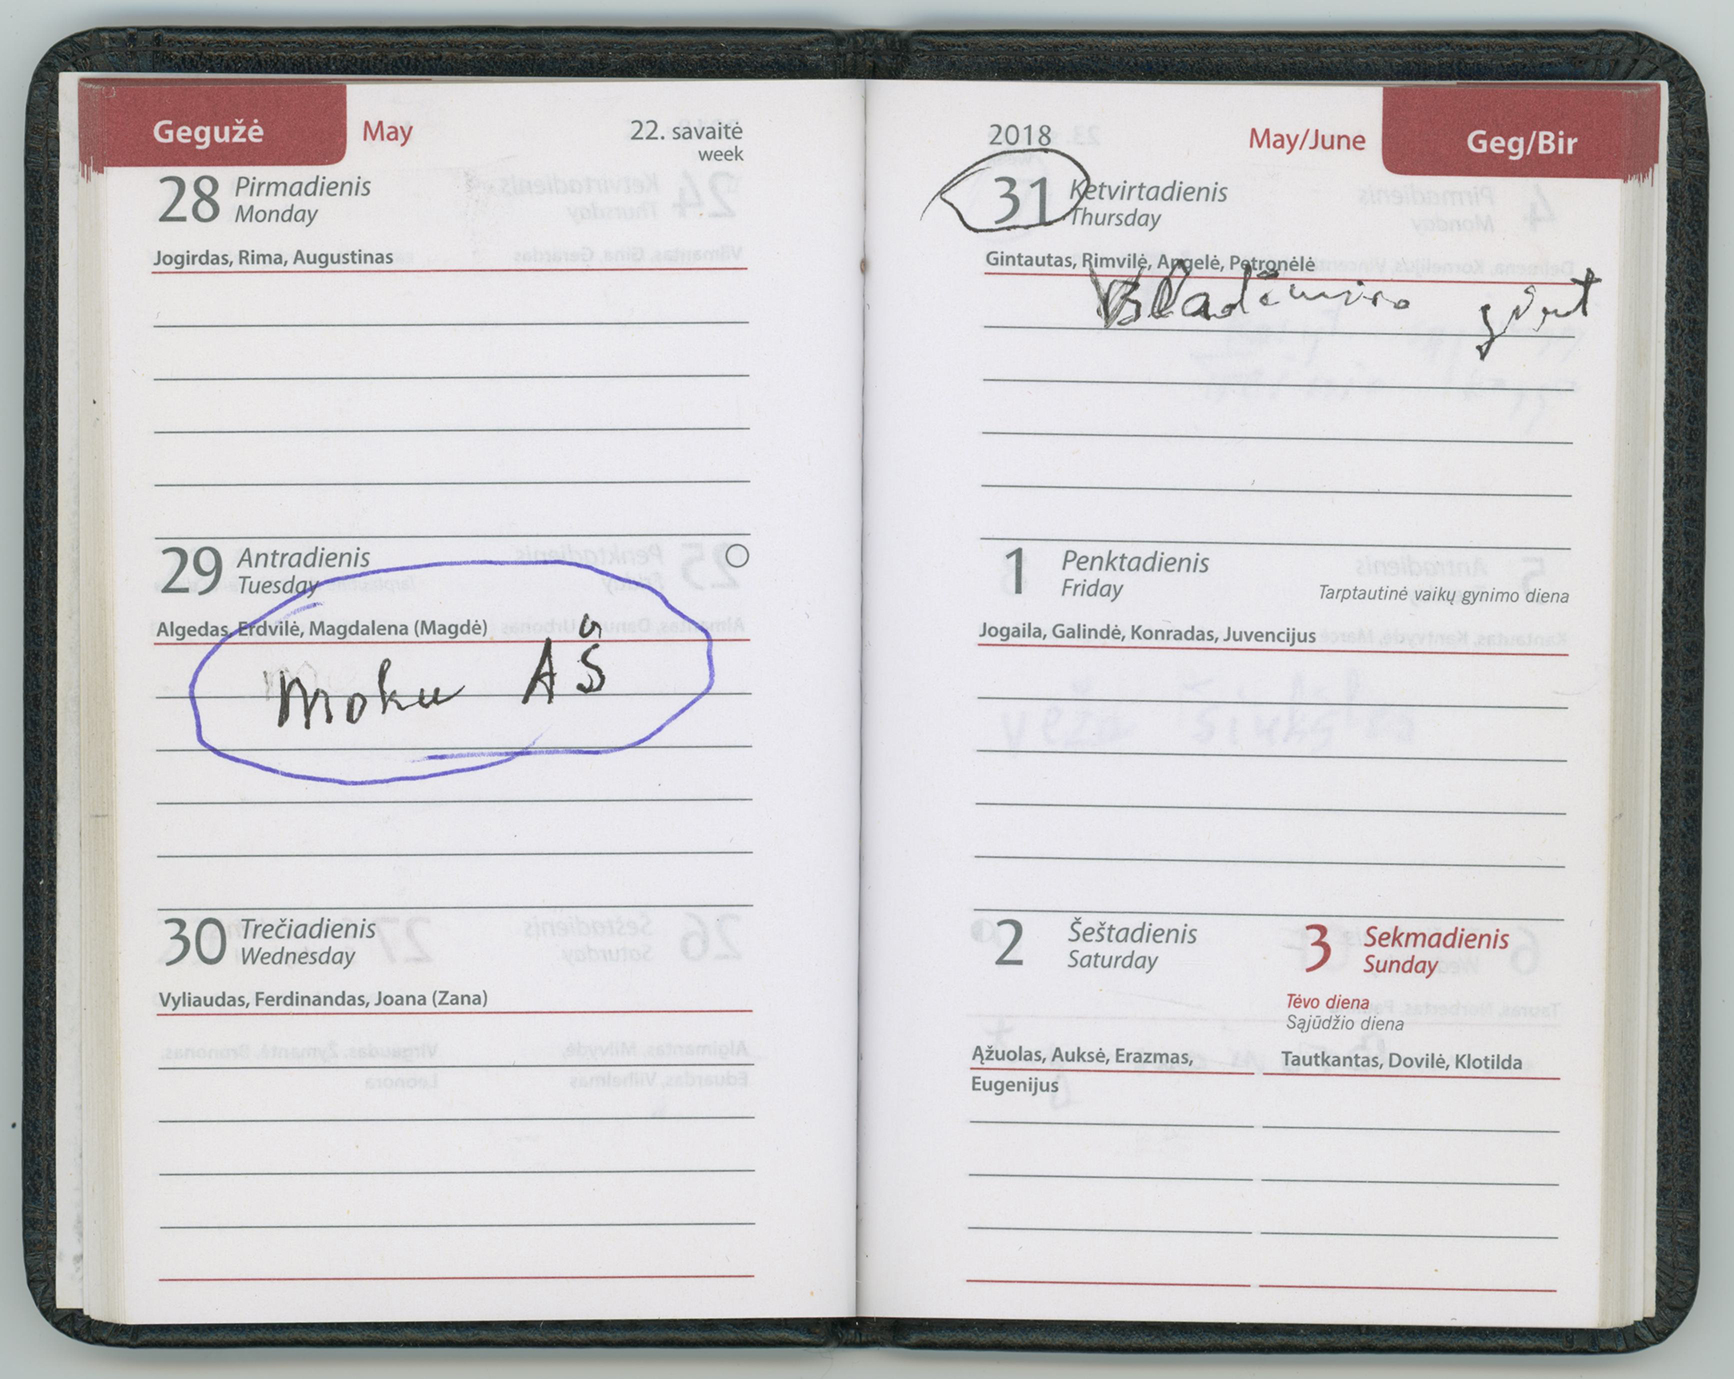 Gegužė May 22. savaitė
week
28 Pirmadienis
Monday
Jogirdas, Rima, Augustinas
29 Antradienis
Tuesday
Algedas, Erdvilė, Magdalena (Magdė)
moku AŠ
30 Trečiadienis
Wednesday
Vyliaudas, Ferdinandas, Joana (Zana)
2018 May/June Geg/Bir
31 Ketvirtadienis
Thursday
Gintautas, Rimvilė, Angelė, Petronėlė
1 Penktadienis
Friday
Tarptautinė vaikų gynimo diena
Jogaila, Galindė, Konradas, Juvencijus
2 Šeštadienis
Saturday
Ąžuolas, Auksė, Erazmas,
Eugenijus
3 Sekmadienis
Sunday
Tėvo diena
Sąjūdžio diena
Tautkantas, Dovilė, Klotilda